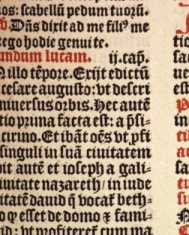 os: scabellũ pedum tuorũ.
Dñs dixit ad me filiꝰ me
ego hodie genui te.
undum lucam. ij. cap̃.
N illo tẽpore. Exijt edictũ
cesare augusto: vt descri
niuersus orbis. Hec autẽ
tio prima facta est: a p̃si-
cirino. Et ibãt oẽs vt p̃fi
singuli in suã ciuitatem
it autẽ et ioseph a gali-
iuitate nazareth/ in iude
itatẽ dauid q̃ vocaĩ beth-
esset de domo ⁊ fami-
id: vt profiteret̃ cum ma